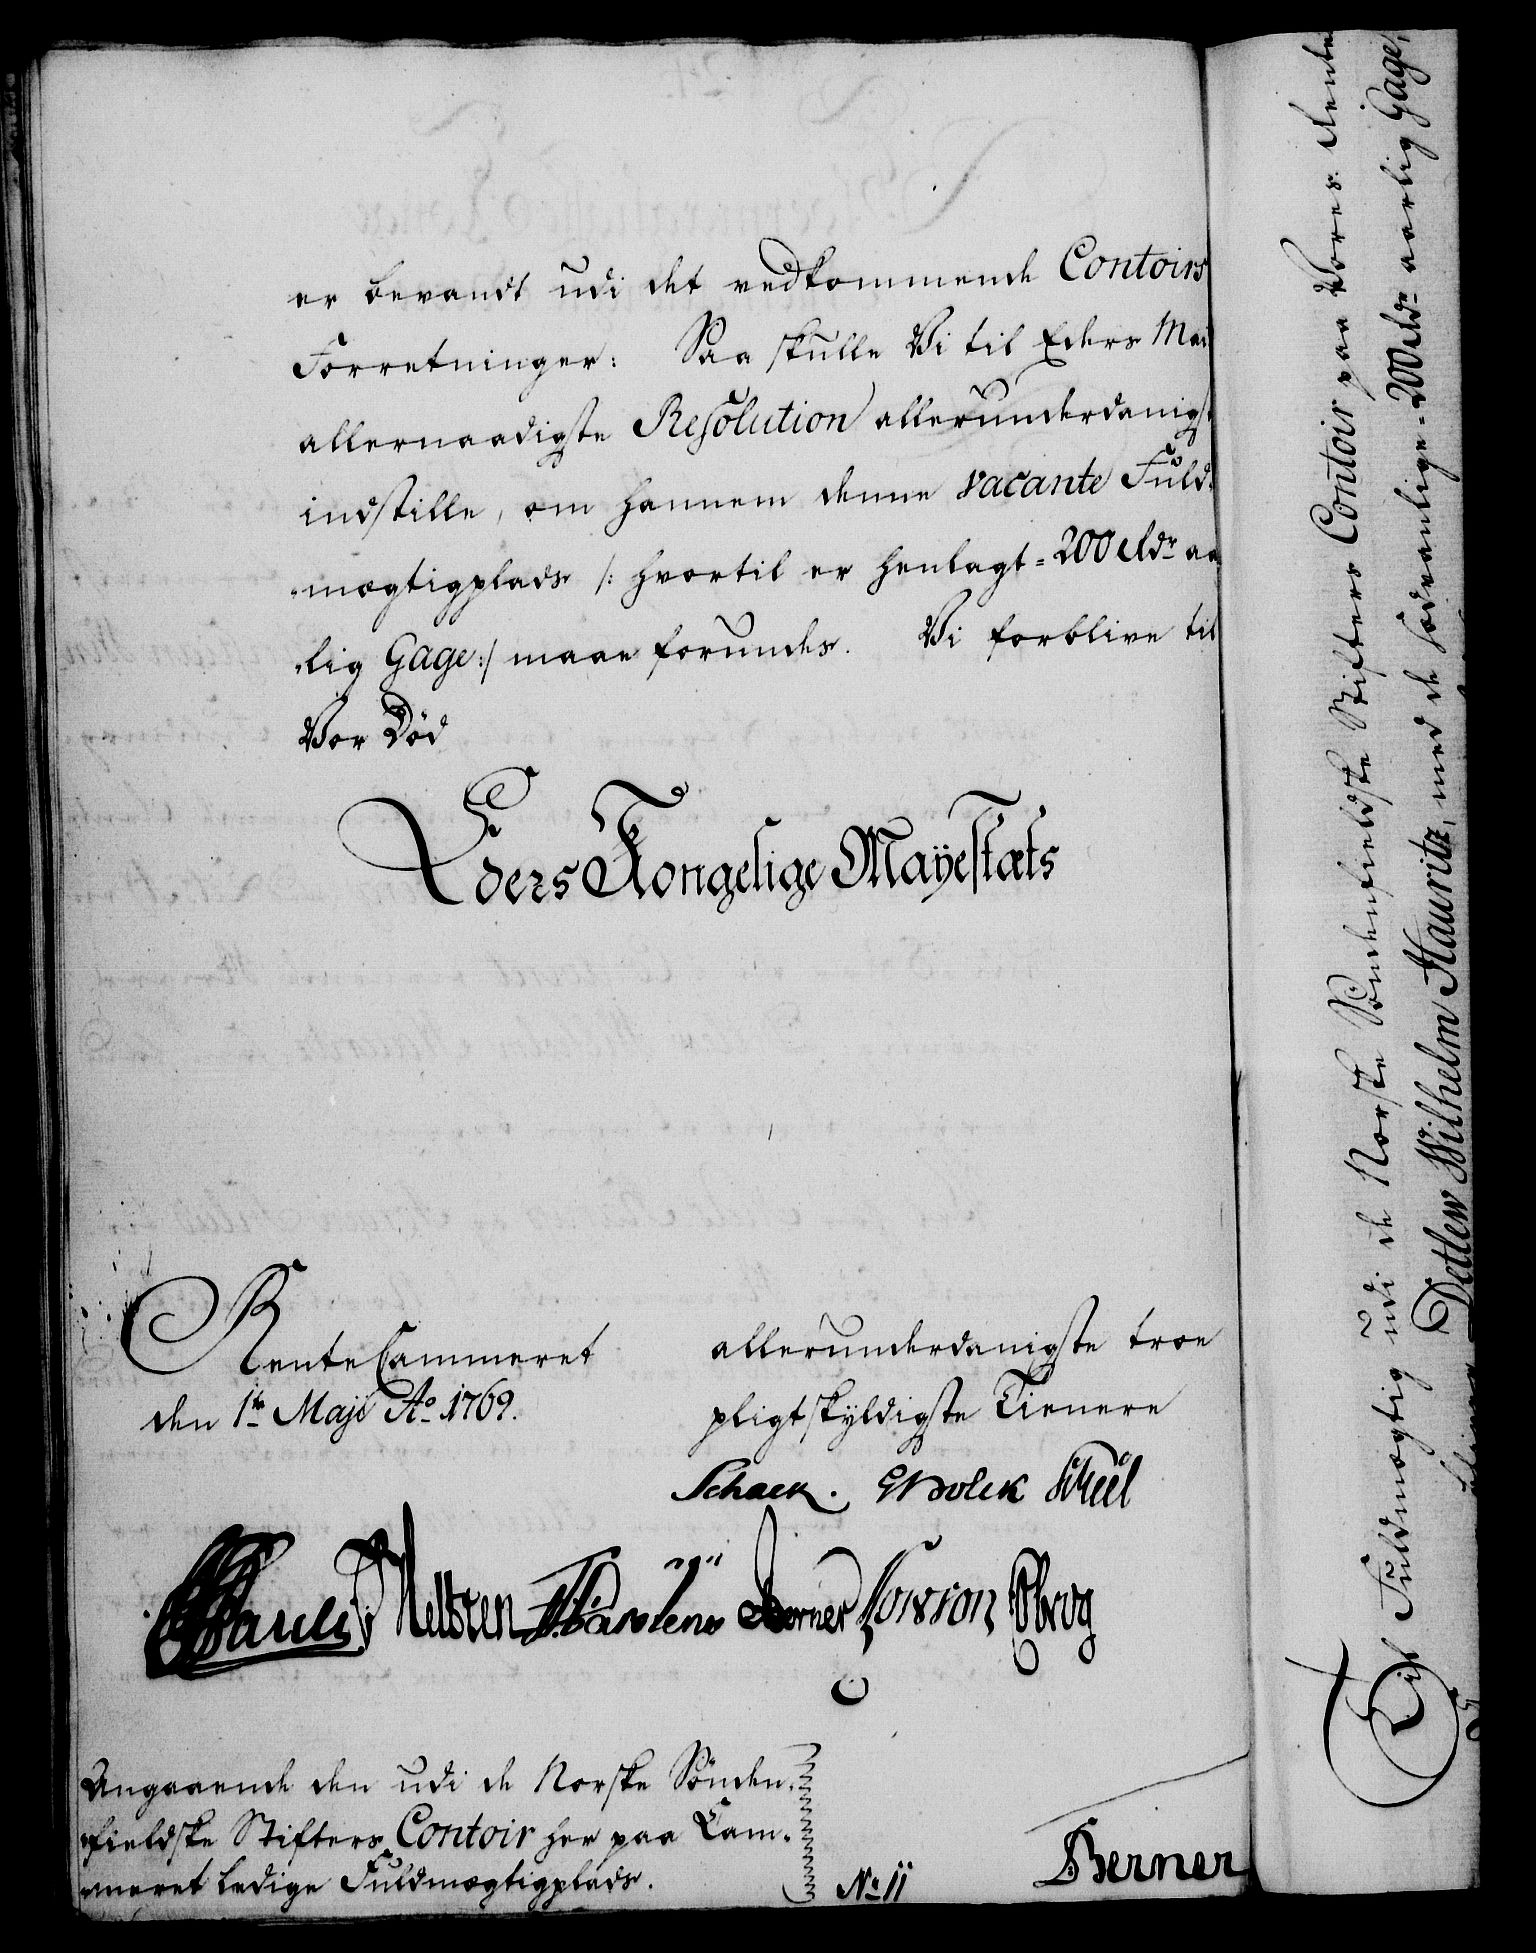 er bevandt udi det vedkommende Contoirs
Forretninger: Saa skulle Vi til Eders Mai
allernaadigste Resolution allerunderdanigst
indstille, om hannem denne vacante Fuld-
mægtigplads /: hvortil er henlagt = 200 Rdr aa
lig Gage :/ maae forundes. Vi forblive til
Vor Død
Eders Kongelige Mayestæts
RenteCammeret
den 1te Maji Ao 1769.
allerunderdanigste troe
pligtskyldigste Tienere
Schack. Scheel
Pauli Berner
Angaaende den udi de Norske Sönden-
fieldske Stifters Contoir her paa Cam-
meret ledige Fuldmægtigplads.
No 11
Berner
Til Fuldmægtig udi de Norske Söndenfieldske Stifters Contoir paa Vores Rente
Detlew Wilhelm Hauritz, med de sædvanlige = 200 Rdr aarlig Gage,